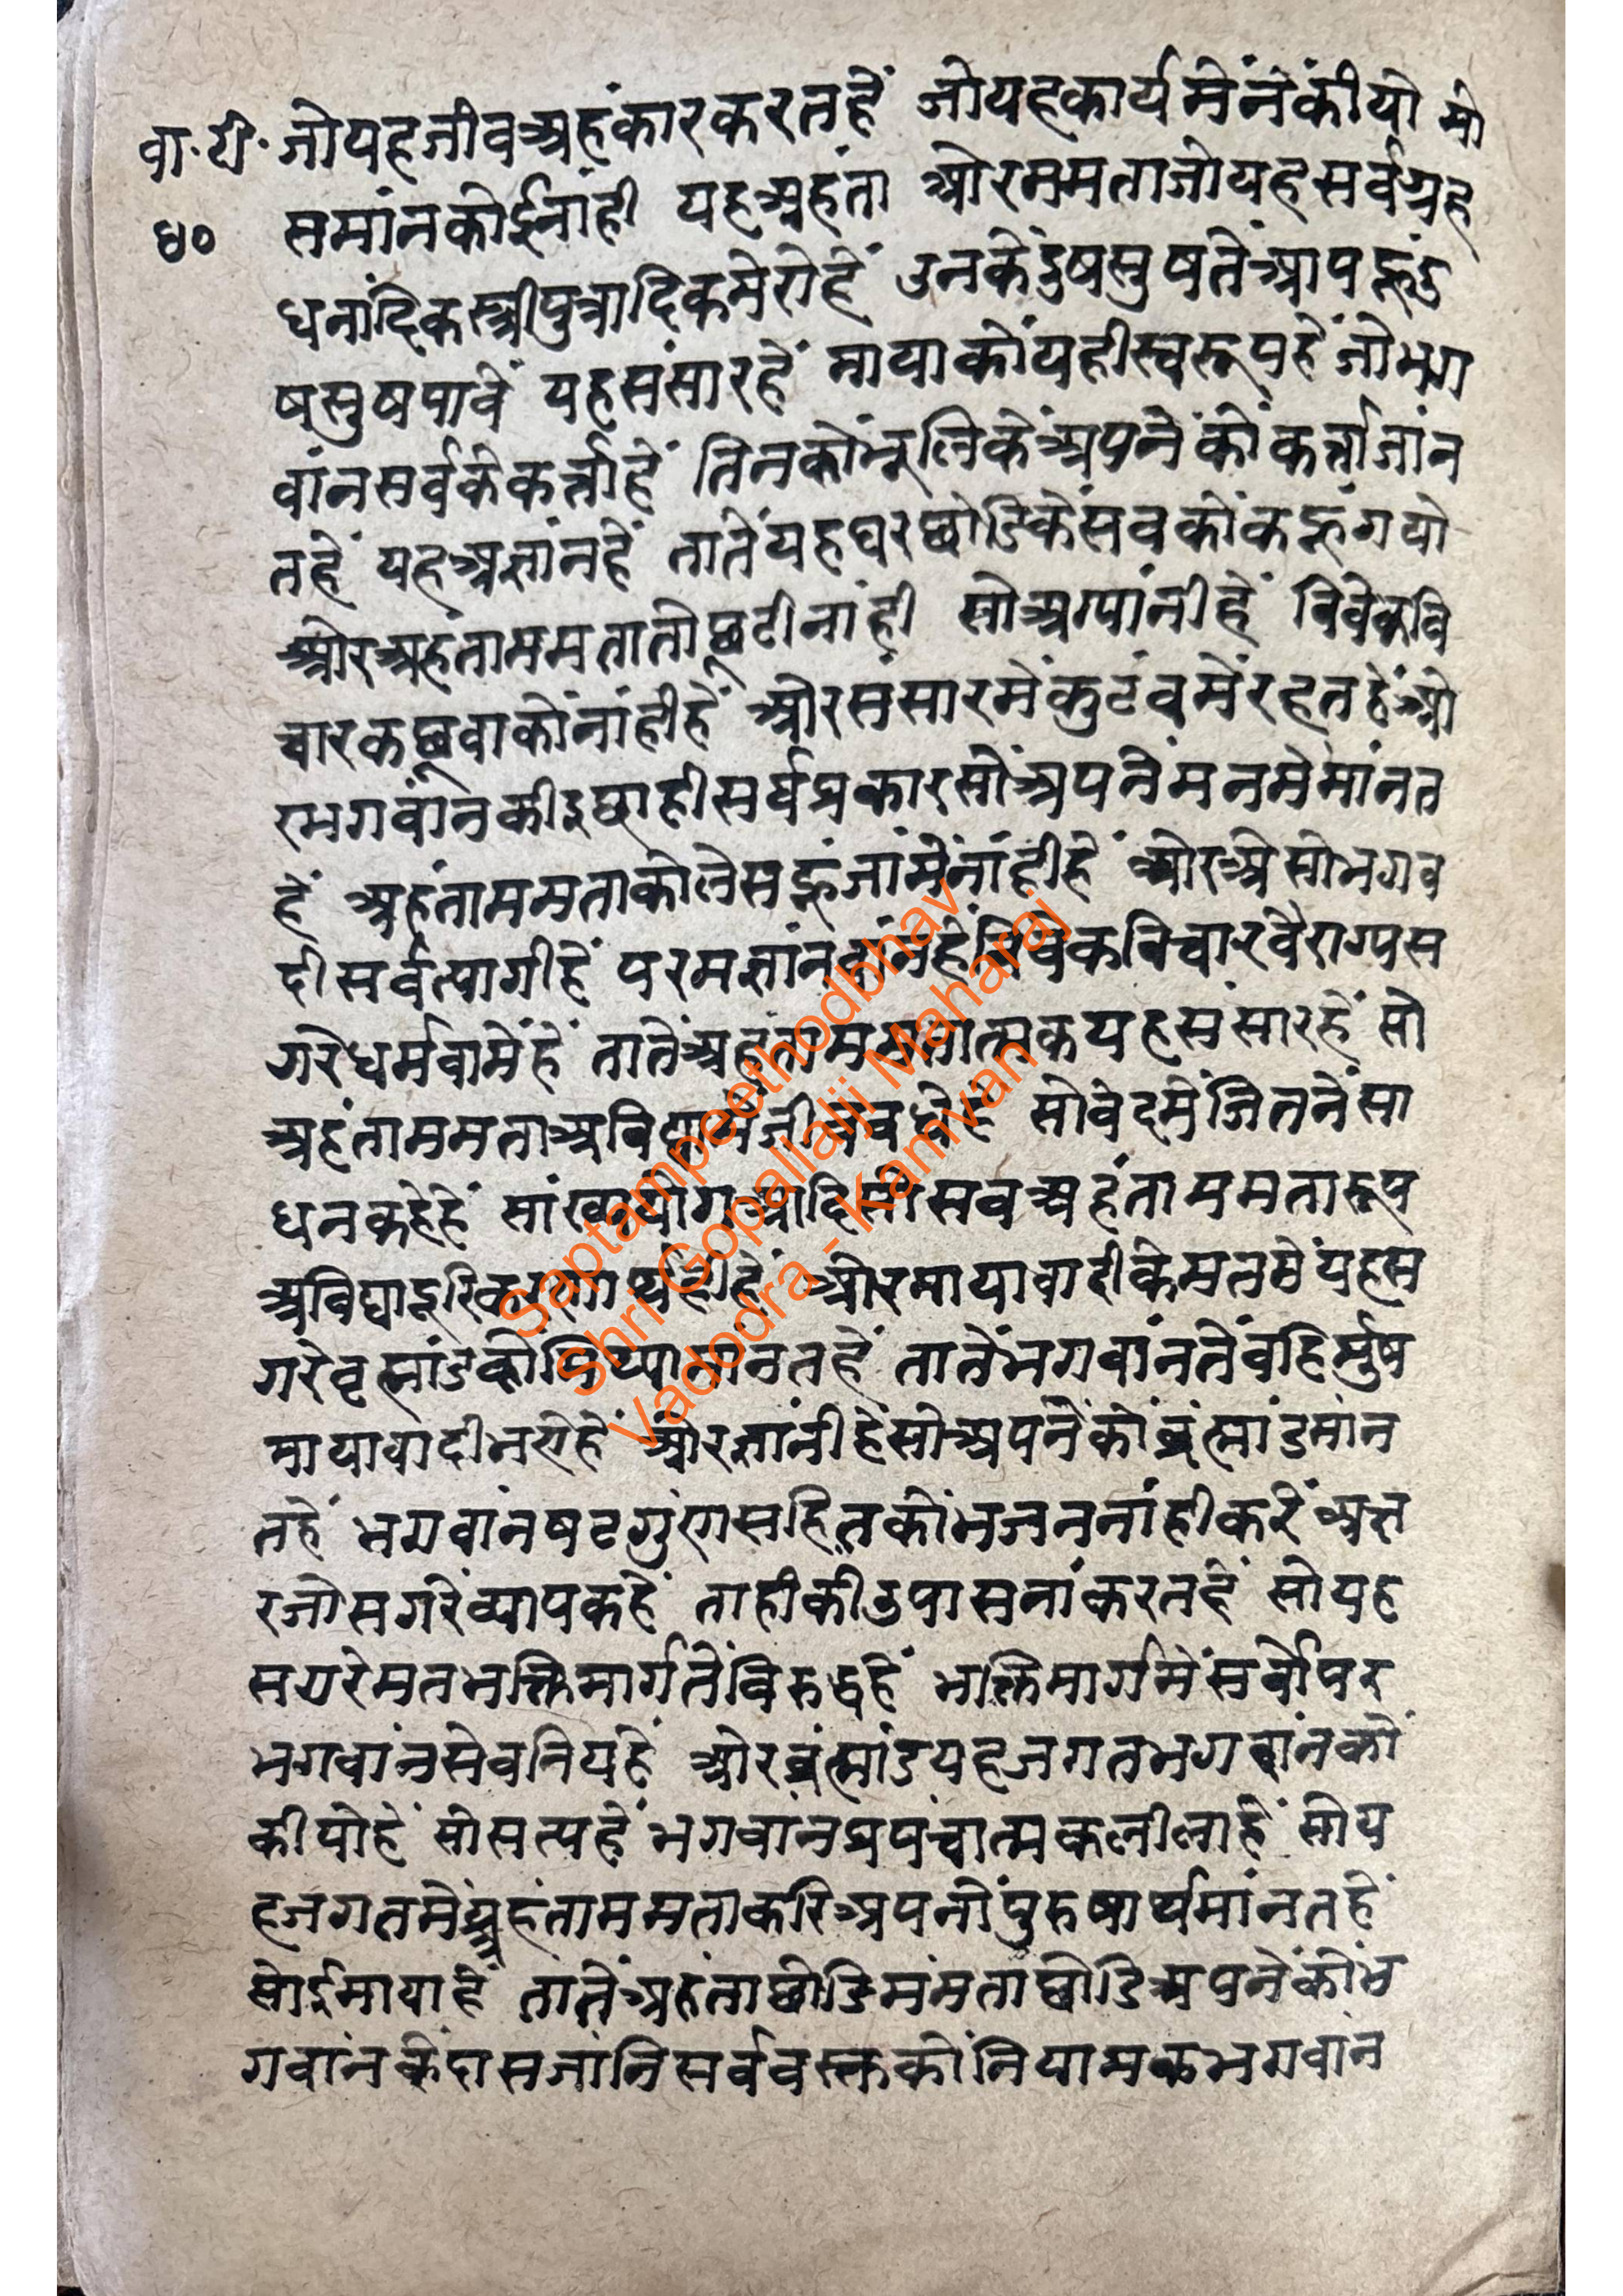 वा.टी. जोयहजीवअहंकारकरतहें जोयहकार्यमेंनेंकीयो मो
४० समांनकोईनांही यहअहंता ओरममताजोयहसर्वग्रह
धनांदिकस्त्रीपुत्रादिकमेरोहें उनकेंदुषसुषतेंआपहूंदु
षसुषपावें यहसंसारहें मायाकोंयहीस्वरूपहेंजोभग
वांनसर्वकेकर्त्ताहें तिनकोंभूलिकेंअपनेंकोंकर्त्ताजांन
तहें यहअज्ञांनहें तातेंयहघरछोडिकेंसवकोंकहूंगयो
ओरअहंतामममतातोछूटीनांही सोअग्यांनीहें विवेकवि
चारकछूवाकोंनांहीहें ओरसंसारमेंकुटंवमेंरहतहेंओ
रभगवांनकीइछाहीसर्वप्रकारसोंअपनेंमनमेंमांनत
हें अहंताममताकोलेसहूंजांमेंनांहीहें ओरअेसोभगव
दीसर्वत्यागीहें परमज्ञांनवांनहेंविवेकविचारवैराग्यस
गरेधर्मवामेंहें तातेंअहंताममतात्मकयहसंसारहें सो
अहंताममताअविद्यामेंजीववंधेहें सोवेदमेंजितनेंसा
धनकहेहें सांख्ययोगआदिसोसवअहंताममतारूप
अविद्यादूरिकरणार्थहीहें ओरमायावादीकेमतमेंयहस
गरेवृह्मांडकोंमिथ्यामांनतहें तातेंभगवांनतेंवहिर्मुष
मायावादीभयेहें ओरज्ञांनीहेंसोअपनेंकोंब्रंह्मांडमांन
तहें भगवांनषटगुंणसहितकोंभजननांहीकरें अत्त
रजोसगरेंव्यापकहें ताहीकीउपासनांकरतहें सोयह
सगरेमतभक्तिमार्गतेंविरुद्धहें भक्तिमार्गमेंसर्वोपर
भगवांनसेवनियहें ओरब्रंह्मांडयहजगतभगवांनकों
कीयोहें सोसत्यहें भगवांनप्रपंचात्मकलीलाहें सोय
हजगतमेंअहंताममताकरिअपनोंपुरुषार्थमांनतहें
सोईमायाहें तातेंअहंताछोडिमंमताछोडिअपनेंकोंभ
गवांनकेंदासजांनिसर्ववस्तकोंनियामकभगवांन
Saptampeethodbhav
Shri Gopallalji Maharaj
Vadodra - Kamvan